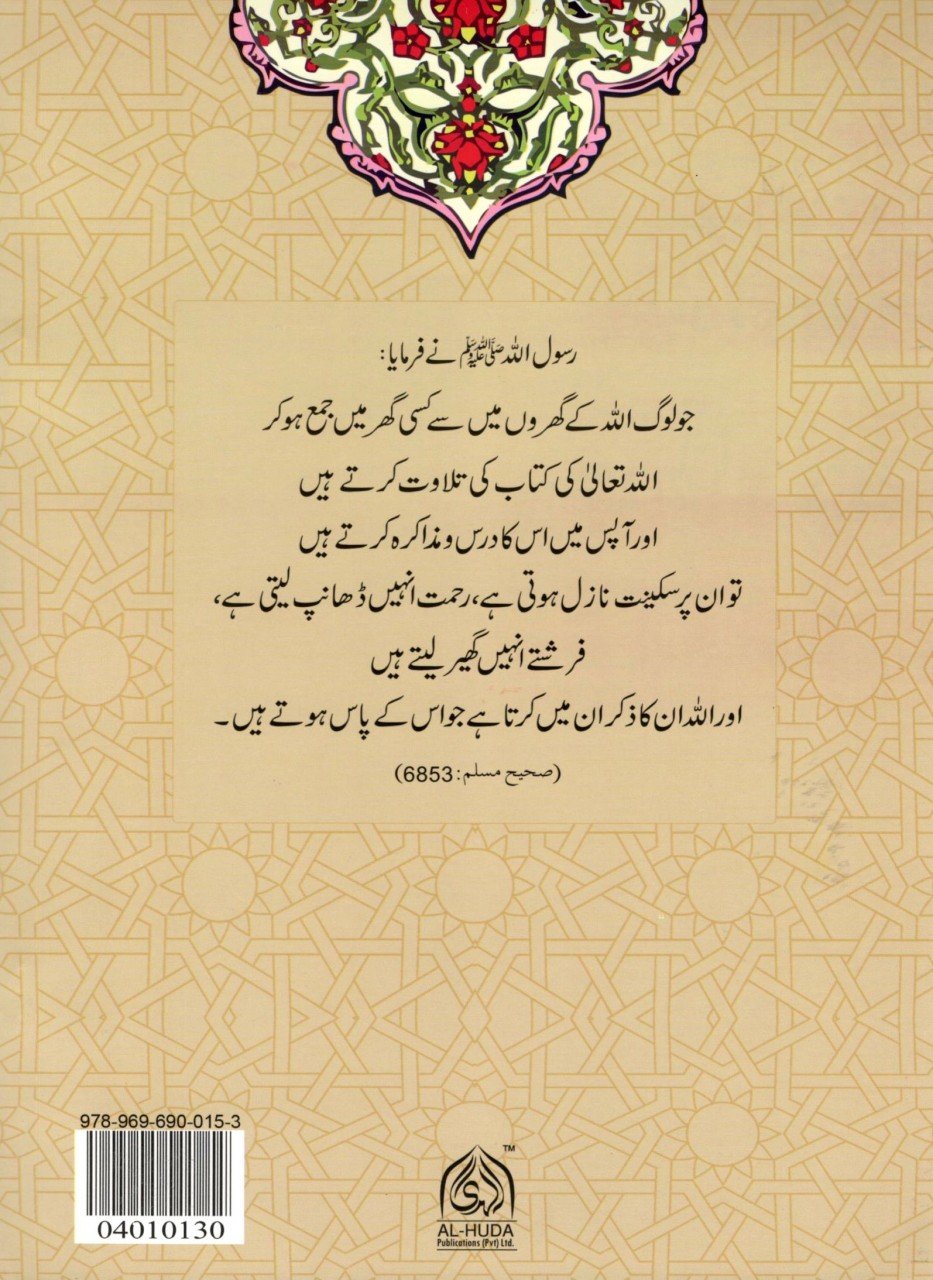 رسول اللہ ﷺ نے فرمایا:
جو لوگ اللہ کے گھروں میں سے کسی گھر میں جمع ہو کر
اللہ تعالیٰ کی کتاب کی تلاوت کرتے ہیں
اور آپس میں اس کا درس و مذاکرہ کرتے ہیں
تو ان پر سکینت نازل ہوتی ہے، رحمت انہیں ڈھانپ لیتی ہے،
فرشتے انہیں گھیر لیتے ہیں
اور اللہ ان کا ذکر ان میں کرتا ہے جو اس کے پاس ہوتے ہیں۔
(صحیح مسلم: 6853)
978-969-690-015-3
04010130
الہدی
™
AL-HUDA
Publications (Pvt) Ltd.